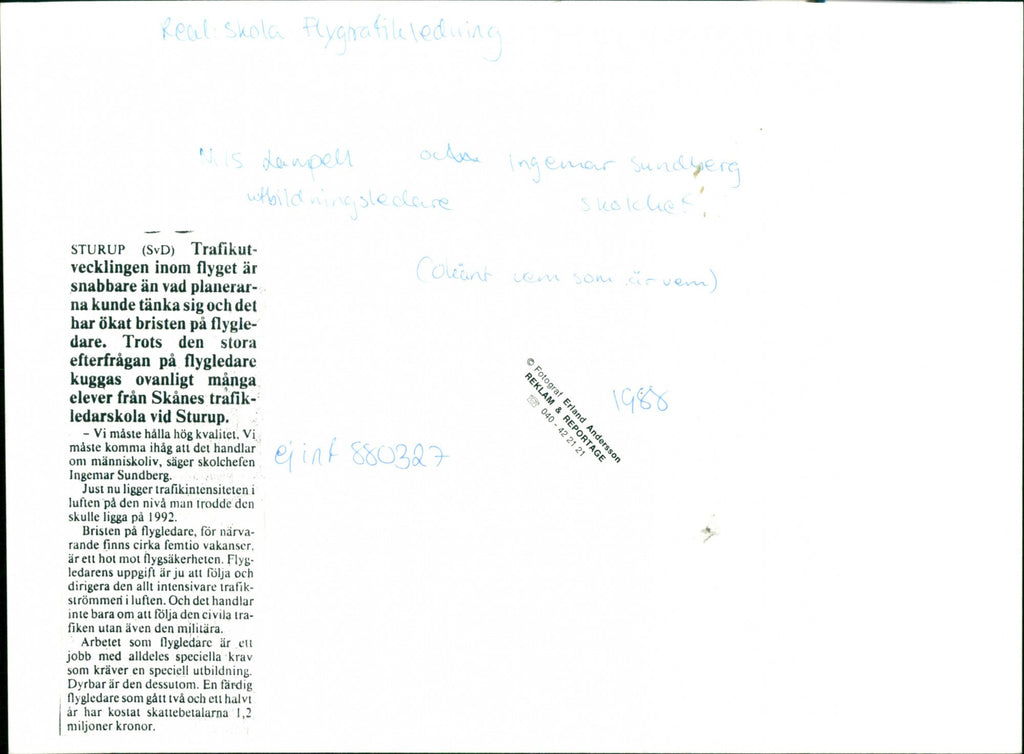 Real: skola Flygtrafikledning
Nils Lampell och Ingemar Sundberg
utbildningsledare skolchef
(Okänt vem som är vem)
STURUP (SvD) Trafikut-
vecklingen inom flyget är
snabbare än vad planerar-
na kunde tänka sig och det
har ökat bristen på flygle-
dare. Trots den stora
efterfrågan på flygledare
kuggas ovanligt många
elever från Skånes trafik-
ledarskola vid Sturup.
– Vi måste hålla hög kvalitet. Vi
måste komma ihåg att det handlar
om människoliv, säger skolchefen
Ingemar Sundberg.
Just nu ligger trafikintensiteten i
luften på den nivå man trodde den
skulle ligga på 1992.
Bristen på flygledare, för närva-
rande finns cirka femtio vakanser,
är ett hot mot flygsäkerheten. Flyg-
ledarens uppgift är ju att följa och
dirigera den allt intensivare trafik-
strömmen i luften. Och det handlar
inte bara om att följa den civila tra-
fiken utan även den militära.
Arbetet som flygledare är ett
jobb med alldeles speciella krav
som kräver en speciell utbildning.
Dyrbar är den dessutom. En färdig
flygledare som gått två och ett halvt
år har kostat skattebetalarna 1,2
miljoner kronor.
© Fotograf Erland Andersson
REKLAM & REPORTAGE
☏ 040 - 42 21 21
1988
ej int 880327